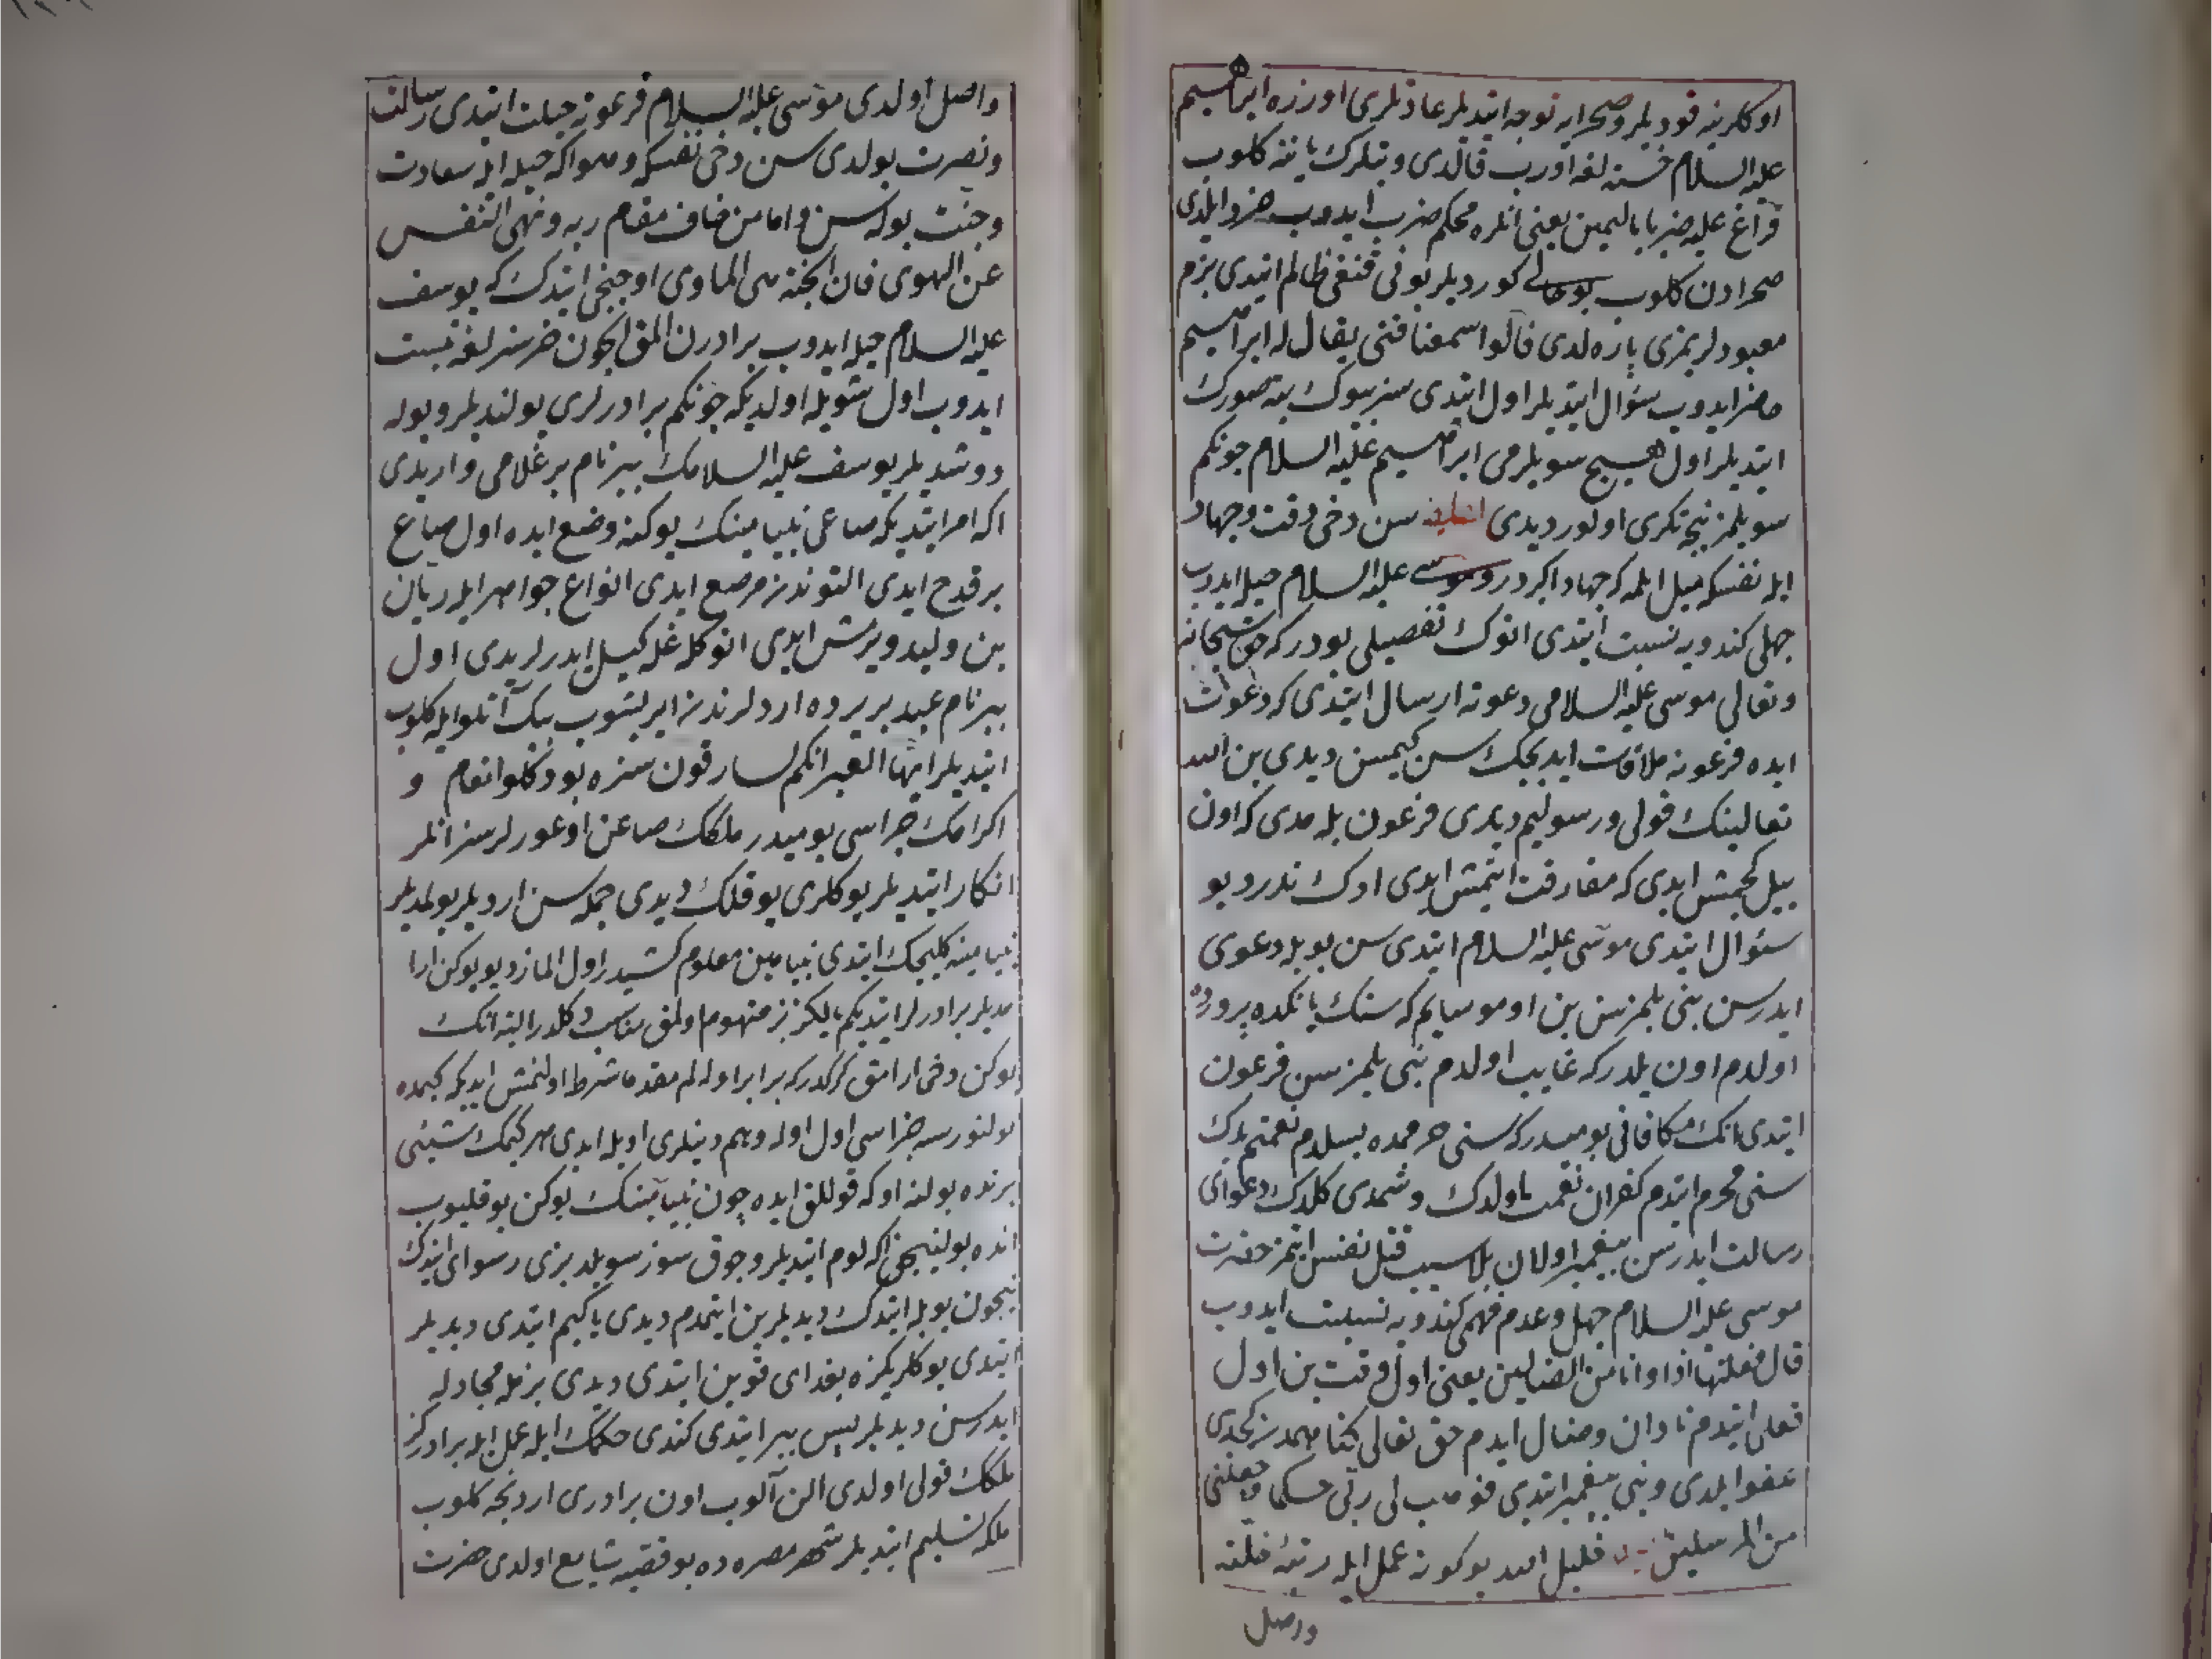 اوكلرينه قوديلر وصحرايه توجه ايتديلر عادتلرى اوزره ابراهيم
عليه السلام خسته لغه اورب قالدى وبتلرك ياننه كلوب
فراغ عليه ضربا باليمين يعنى انلره محكم ضرب ايدوب خرد ايلدى
صحرادن كلوب بو حالى كورديلر بونى قنغى ظالم ايتدى بزم
معبودلريمزى پاره لدى قالوا سمعنا فتى يقال له ابراهيم
حاضر ايدوب سؤال ايتديلر اول ايتدى سز بيوك بته صورك
ايتديلر اول هيچ سويلرمى ابراهيم عليه السلام چونكم
سويلمز نيجه تكرى اولور ديدى سن دخى دقت وجهاد
ايله نفسكه ميل ايلمه كه جهاد اكبردر وموسى عليه السلام حيله ايدوب
جهلى كندويه نسبت ايتدى انوك تفصيلى بودر كه حق سبحانه
وتعالى موسى عليه السلامى دعوته ارسال ايتدى كه دعوت
ايده فرعونه ملاقات ايديجك سن كيمسن ديدى بن الله
تعالينك قولى ورسوليم ديدى فرعون بله مدى كه اون
ييل كچمش ايدى كه مفارقت ايتمش ايدى ادك ندر ديو
سئوال ايتدى موسى عليه السلام ايتدى سن بويله دعوى
ايدرسن بنى بلمزسن بن او موسايم كه سنك يانكده پرورده
اولدم اون يلدر كه غايب اولدم بنى بلمزسن فرعون
ايتدى انك مكافاتى بوميدر كه سنى حرممده بسلدم نعمتم يدك
سنى محرم ايتدم كفران نعمت اولدك وشمدى كلدك دعواى
رسالت ايدرسن پيغمبر اولان بلا سبب قتل نفس ايتمز حضرت
موسى عليه السلام جهل وعدم فهمى كندويه نسبت ايدوب
قال فعلتها اذا وانا من الضالين يعنى اول وقت بن اول
فعلى ايتدم نادان وضال ايدم حق تعالى كناهمدن كچدى
عفو ايلدى وبنى پيغمبر ايتدى فوهب لى ربى حكما وجعلنى
من المرسلين خليل الله بو كونه عمل ايله رتبۀ خلته
واصل
واصل اولدى موسى عليه السلام فرعونه حيلت ايتدى رسالت
ونصرت بولدى سن دخى نفسكه وهواكه حيله ايله سعادت
وجنت بوله سن واما من خاف مقام ربه ونهى النفس
عن الهوى فان الجنة هى الماوى اوچنجى ايتدك كه يوسف
عليه السلام حيله ايدوب برادرن المق ايچون خرسزلغه نسبت
ايدوب اول شويله اولديكه چونكم برادرلرى بولنديلر ويوله
دوشديلر يوسف عليه السلامك ببرنام بر غلامى واريدى
اكه امر ايتديكه صاعى بنيامينك يوكنه وضع ايده اول صاع
بر قدح ايدى التوندن مرصع ايدى انواع جواهر ايله ريان
بن وليد ويرمش ايدى انوكله غله كيل ايدرلريدى اول
ببرنام عبد بريرده اردلرندن ايريشوب بيك آتلو ايله كلوب
ايتديلر ايتها العير انكم لسارقون سزه بودكلو انعام و
اكرامك جزاسى بوميدر ملكك صاعن اوغورلرسز انلر
انكار ايتديلر يوكلرى يوقلك ديدى جمله سن ارديلر بولمديلر
بنيامينه كليجك ايتدى بنيامين معلوم كشيدر اول المازديو يوكن ارا
مديلر برادرلر ايتديكم يالكز بز متهوم اولمق مناسب دكلدر البته انك
يوكن دخى ارامق كركدر كه برابر اوله لم مقدما شرط اولنمش ايديكه كيمده
بولنورسه جزاسى اول اوله وهم دينلرى اويله ايدى هر كيمك شيئى
برنده بولنه اوكه قوللق ايده چون بنيامينك يوكن يوقليوب
انده بولنيجق اكه لوم ايتديلر وچوق سوز سويلديلر بزى رسواى ايتدك
نيچون بويله ايتدك ديديلر بن ايتمدم ديدى يا كيم ايتدى ديديلر
ايتدى يوكلريكزه بغداى قوين ايتدى ديدى بزمله مجادله
ايدرسن ديديلر پس ببر ايتدى كندى حكمك ايله عمل ايله برادركز
ملكك قولى اولدى الن آلوب اون برادرى اردنجه كلوب
ملكه تسليم ايتديلر شهر مصرده بو قضيه شايع اولدى حضرت